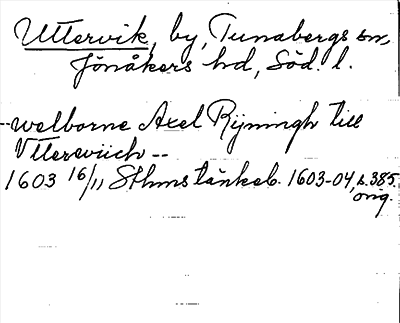 Uttervik, by, Tunabergs sn,
Jönåkers hd, Söd. l.
--welborne Axel Rÿningh till
Vttereviich--
1603 16/11 Sthms tänkeb. 1603-04, s. 385.
orig.